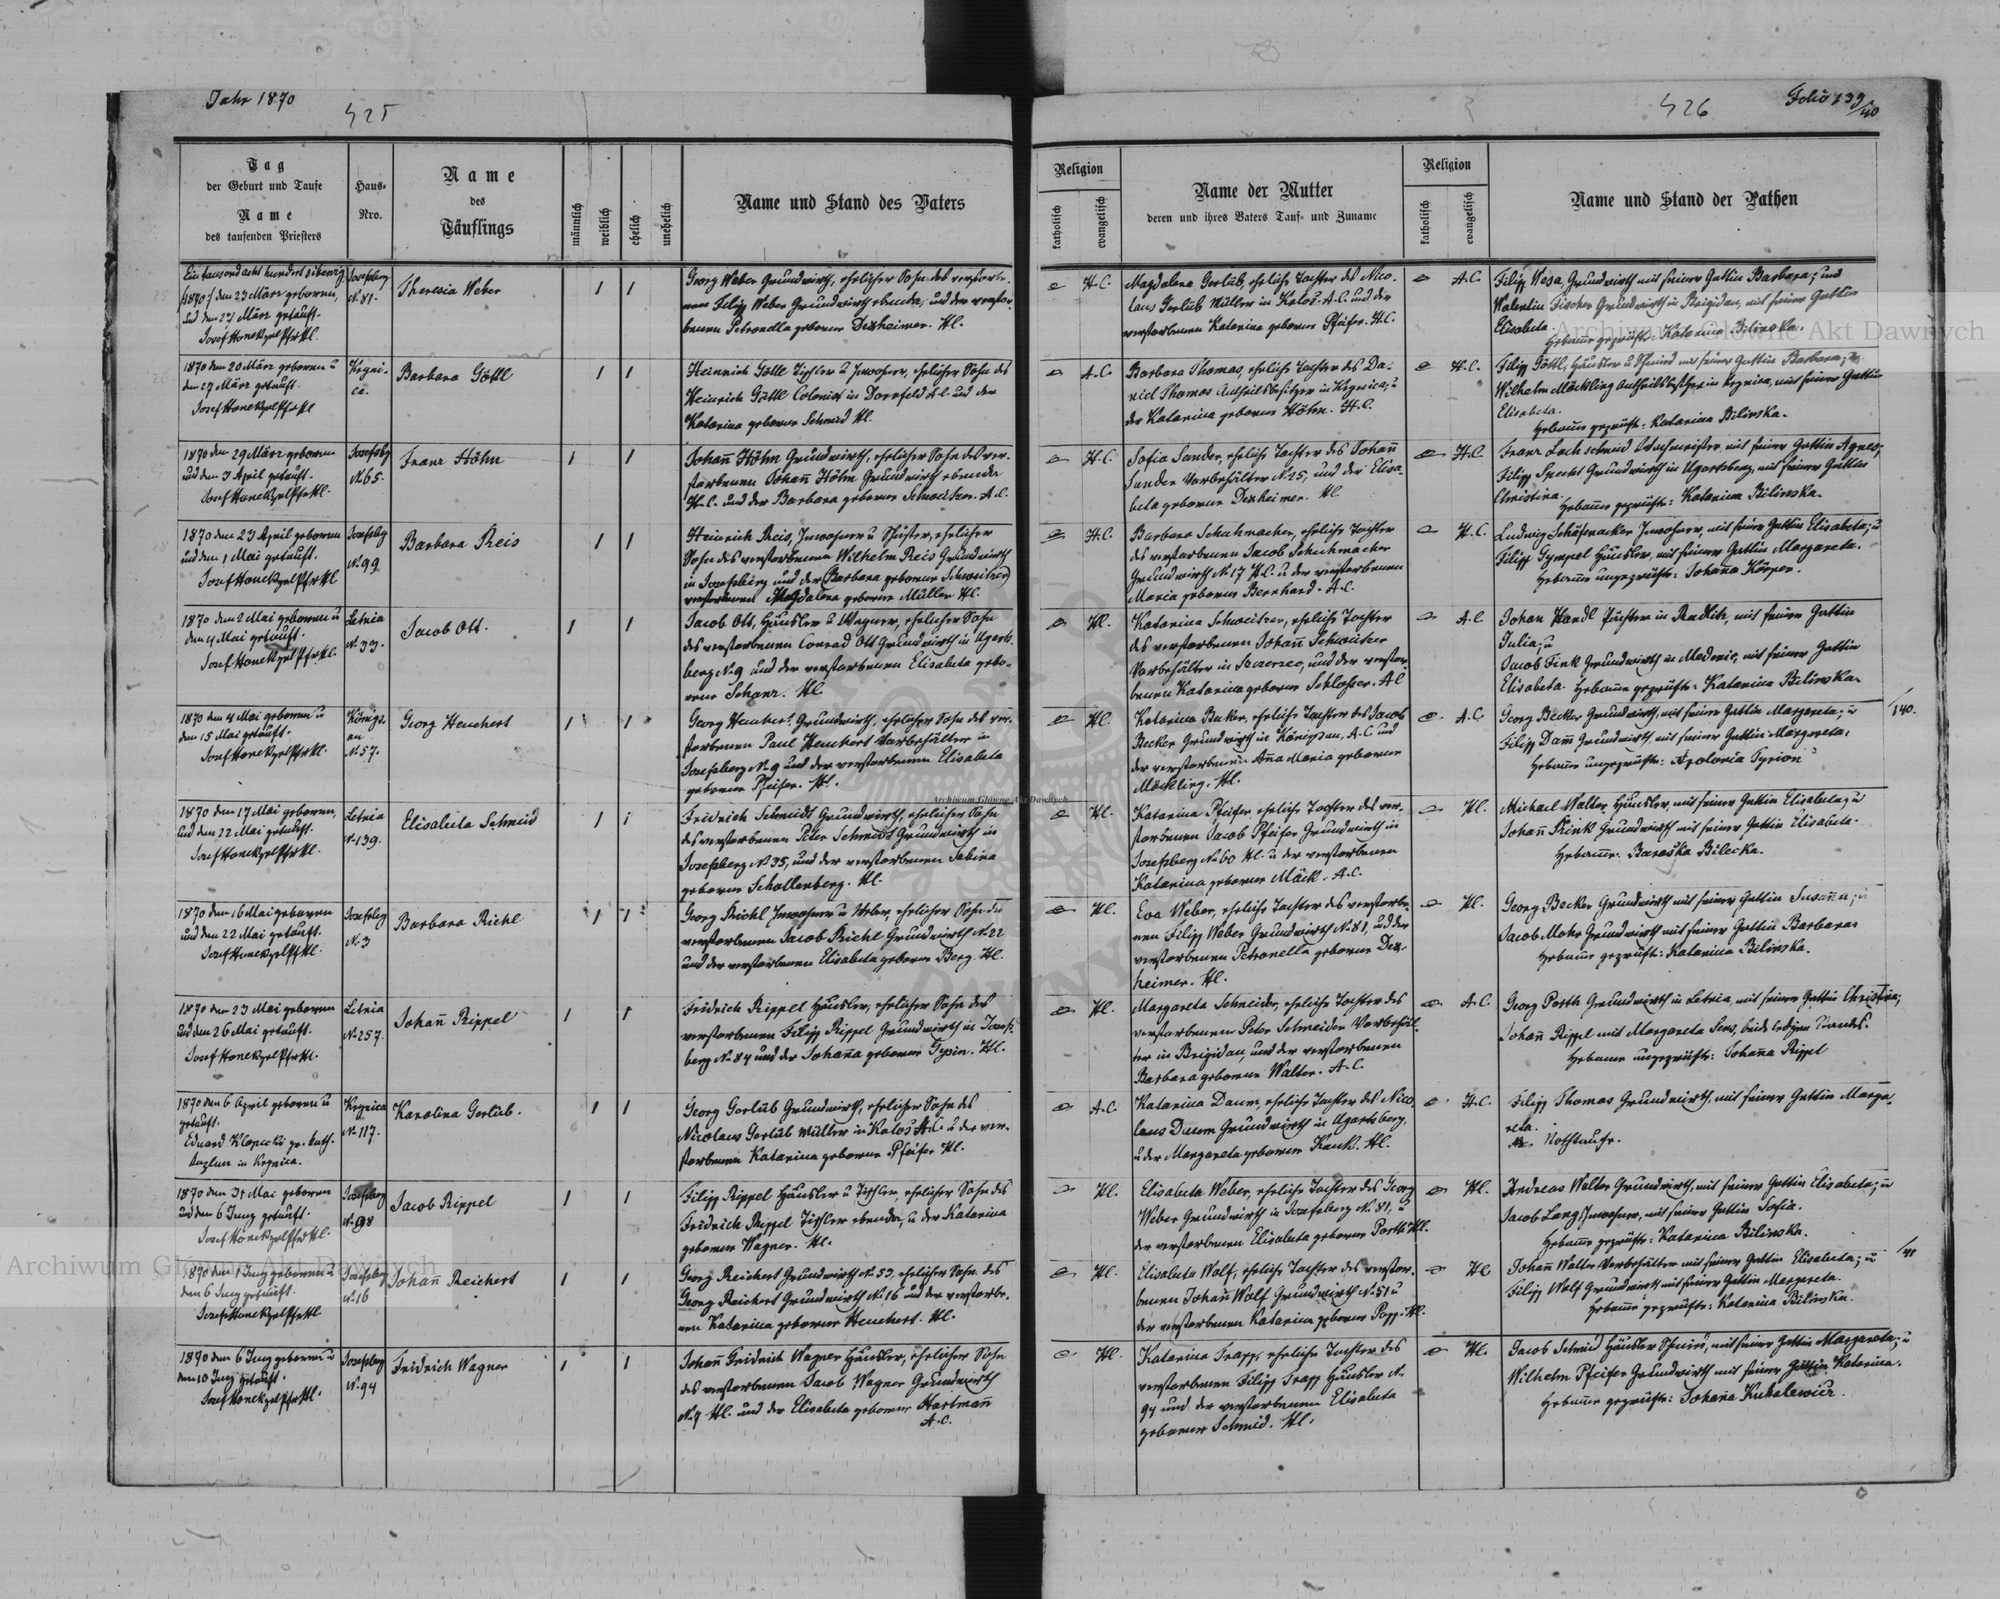 Jahr 1870
425
426
Folio 139/40
Tag
der Geburt und Taufe
Name
des taufenden Priesters
Haus-
Nro.
Name
des
Täuflings
männlich
weiblich
ehelich
unehelich
Name und Stand des Vaters
Religion
katholisch
evangelisch
Name der Mutter
deren und ihres Vaters Tauf- und Zuname
Religion
katholisch
evangelisch
Name und Stand der Pathen
Ein tausend acht hundert sibenzig
/1870/ den 23 März geboren,
und den 27 März getauft.
Josef Honek
Josefsberg
N. 81.
Theresia Weber
Georg Weber Grundwirth, ehelicher Sohn des verstorbe-
nen Filipp Weber Grundwirth ebenda, und der verstor-
benen Petronella geborene Dexheimer. H.C.
H.C.
Magdalena Gorlüb, eheliche Tochter des Nico-
laus Gorlüb Müller in Kalos A.C. und der
verstorbenen Katarina geborene Pfeifer. H.C.
A.C.
Filipp Wesa, Grundwirth mit seiner Gattin Barbara; und
Walentin Fischer Grundwirth in Brigidau, mit seiner Gattin
Elisabeta.
Hebamme geprüft: Katarina Bilinska.
1870 den 20 März geboren u
den 27 März getauft.
Josef Honek
Krgni-
ca.
Barbara Göttl
Heinrich Göttl Tischler u Inwohner, ehelicher Sohn des
Heinrich Göttl Colonist in Dornfeld A.C. und der
Katarina geborene Schmid H.C.
A.C.
Barbara Thomas, eheliche Tochter des Da-
niel Thomas Antheilsbesitzer in Krgnica, u
der Katarina geborene Höhn. H.C.
H.C.
Filipp Göttl, Häusler u Schmied mit seiner Gattin Barbara; u
Wilhelm Möckling Antheilsbesitzer in Krgnica, mit seiner Gattin
Elisabeta.
Hebamme geprüft: Katarina Bilinska.
1870 den 29 März geboren
und den 3 April getauft.
Josef Honek
Josefsbg
N. 65.
Franz Höhn
Johann Höhn Grundwirth, ehelicher Sohn des ver-
storbenen Johann Höhn Grundwirth ebenda
H.C. und der Barbara geborene Schweitzer. A.C.
H.C.
Sofia Sander, eheliche Tochter des Johann
Sander Vorbehälter N. 25, und der Elisa
beta geborene Dexheimer. H.C.
H.C.
Franz Lachschmid Ortschmeister mit seiner Gattin Agnes;
Filipp Specht Grundwirth in Ugartsberg, mit seiner Gattin
Christina.
Hebamme geprüft: Katarina Bilinska.
1870 den 23 April geboren
und den 1 Mai getauft.
Josef Honek
Josefsbg
N. 99
Barbara Preis
Heinrich Preis, Inwohner u Schuster, ehelicher
Sohn des verstorbenen Wilhelm Preis Grundwirth
in Josefsberg und der (Barbara geborene Schweitzer)
verstorbenen Magdalena geborene Müller H.C.
H.C.
Barbara Schuhmacher, eheliche Tochter
des verstorbenen Jacob Schuhmacher
Grundwirth N. 17 H.C. u der verstorbenen
Maria geborene Bernhard. A.C.
H.C.
Ludwig Schäfnacker Inwohner, mit seiner Gattin Elisabeta; u
Filipp Gympel Häusler, mit seiner Gattin Margareta.
Hebamme ungeprüft: Johanna Körper.
1870 den 2 Mai geboren u
den 4 Mai getauft.
Josef Honek
Letnia
N. 33.
Jacob Ott.
Jacob Ott, Häusler u Wagner, ehelicher Sohn
des verstorbenen Conrad Ott Grundwirth in Ugarts-
berg N. 9 und der verstorbenen Elisabeta gebo-
rene Schanz. H.C.
H.C.
Katarina Schweitzer, eheliche Tochter
des verstorbenen Johann Schweitzer
Vorbehälter in Szczerzec, und der verstor-
benen Katarina geborene Schlosser. A.C.
A.C.
Johan Handl Pächter in Radlitz, mit seiner Gattin
Julia; u
Jacob Fink Grundwirth in Medenice, mit seiner Gattin
Elisabeta. Hebamme geprüft: Katarina Bilinska.
1870 den 4 Mai geboren u
den 15 Mai getauft.
Josef Honek
Königs-
au
N. 57.
Georg Heuchert
Georg Heuchert, Grundwirth, ehelicher Sohn des ver-
storbenen Paul Heuchert Vorbehälter in
Josefsberg N. 9 und der verstorbenen Elisabeta
geborene Pfeifer. H.C.
H.C.
Katarina Becker, eheliche Tochter des Jacob
Becker Grundwirth in Königsau, A.C. und
der verstorbenen Anna Maria geborene
Möckling. H.C.
A.C.
Georg Becker Grundwirth, mit seiner Gattin Margareta; u
Filipp Damm Grundwirth mit seiner Gattin Margareta.
Hebamme ungeprüft: Apolonia Tyrion
/140.
1870 den 17 Mai geboren,
und den 22 Mai getauft.
Josef Honek
Letnia
N. 139.
Elisabeta Schmid
Fridrich Schmidt Grundwirth, ehelicher Sohn
des verstorbenen Peter Schmidt Grundwirth in
Josefsberg N. 35, und der verstorbenen Sabina
geborene Schallenberg. H.C.
H.C.
Katarina Pfeifer eheliche Tochter des ver-
storbenen Jacob Pfeifer Grundwirth in
Josefsberg N. 60 H.C. u der verstorbenen
Katarina geborene Mäck. A.C.
H.C.
Michael Walter Häusler, mit seiner Gattin Elisabeta; u
Johann Prink Grundwirth mit seiner Gattin Elisabeta.
Hebamme. Baraska Bilecka.
1870 den 16 Mai geboren
und den 22 Mai getauft.
Josef Honek
Josefsbg
N. 3
Barbara Richl
Georg Richl Inwohner u Weber, ehelicher Sohn des
verstorbenen Jacob Richl Grundwirth N. 22
und der verstorbenen Elisabeta geborene Berg. H.C.
H.C.
Eva Weber, eheliche Tochter des verstorbe-
nen Filipp Weber Grundwirth N. 81, und der
verstorbenen Petronella geborene Dex-
heimer. H.C.
H.C.
Georg Becker Grundwirth mit seiner Gattin Susanna; u
Jacob Mohr Grundwirth mit seiner Gattin Barbara.
Hebamme geprüft: Katarina Bilinska.
1870 den 23 Mai geboren
und den 26 Mai getauft.
Josef Honek
Letnia
N. 257.
Johann Rippel
Fridrich Rippel Häusler, ehelicher Sohn des
verstorbenen Filipp Rippel Grundwirth in Josefs-
berg N. 84 und der Johanna geborene Gysin. H.C.
H.C.
Margareta Schneider, eheliche Tochter des
verstorbenen Peter Schneider Vorbehäl-
ter in Brigidau, und der verstorbenen
Barbara geborene Walter. A.C.
A.C.
Georg Porth Grundwirth in Letnia, mit seiner Gattin Christina;
Johann Rippel mit Margareta Sens, beide ledigen Standes.
Hebamme ungeprüft: Johanna Rippel
1870 den 6 April geboren u
getauft.
Eduard Klopecki gr. kath.
Kaplan in Krgnica.
Krgnica
N. 117.
Karolina Gorlüb.
Georg Gorlüb Grundwirth, ehelicher Sohn des
Nicolaus Gorlüb Müller in Kalos A.C. u der ver-
storbenen Katarina geborene Pfeifer H.C.
A.C.
Katarina Daum, eheliche Tochter des Nico
laus Daum Grundwirth in Ugartsberg,
u der Margareta geborene Kauk. H.C.
H.C.
Filipp Thomas Grundwirth, mit seiner Gattin Marga-
reta.
Nothtaufe.
1870 den 31 Mai geboren
und den 6 Juny getauft.
Josef Honek
Josefsberg
N. 98
Jacob Rippel
Filipp Rippel Häusler u Tischler, ehelicher Sohn des
Fridrich Rippel Tischler ebenda, u der Katarina
geborene Wagner. H.C.
H.C.
Elisabeta Weber, eheliche Tochter des Georg
Weber Grundwirth in Josefsberg N. 81, u
der verstorbenen Elisabeta geborene Porth H.C.
H.C.
Andreas Walter Grundwirth, mit seiner Gattin Elisabeta; u
Jacob Lang Inwohner, mit seiner Gattin Sofia.
Hebamme geprüft: Katarina Bilinska.
1870 den 1 Juny geboren u
den 6 Juny getauft.
Josef Honek
Josefsberg
N. 16
Johann Reichert
Georg Reichert Grundwirth N. 53, ehelicher Sohn des
Georg Reichert Grundwirth N. 16 und der verstorbe-
nen Katarina geborene Heuchert. H.C.
H.C.
Elisabeta Wolf, eheliche Tochter des verstor-
benen Johann Wolf Grundwirth N. 51 u
der verstorbenen Katarina geborene Popp. H.C.
H.C.
Johann Walter Vorbehälter mit seiner Gattin Elisabeta; u
Filipp Wolf Grundwirth mit seiner Gattin Margareta.
Hebamme geprüft: Katarina Bilinska.
/41
1870 den 6 Juny geboren u
den 10 Juny getauft.
Josef Honek
Josefsberg
N. 94
Fridrich Wagner
Johann Fridrich Wagner Häusler, ehelicher Sohn
des verstorbenen Jacob Wagner Grundwirth
N. 4 H.C. und der Elisabeta geborene Hartmann
A.C.
H.C.
Katarina Trapp, eheliche Tochter des
verstorbenen Filipp Trapp Häusler N.
94 und der verstorbenen Elisabeta
geborene Schmid. H.C.
H.C.
Jacob Schmid Häusler Schmid, mit seiner Gattin Margareta; u
Wilhelm Pfeifer Grundwirth mit seiner Gattin Katarina.
Hebamme geprüft: Johanna Kukalewicz.
Archiwum Główne Akt Dawnych
Archiwum Główne Akt Dawnych
Archiwum Główne Akt Dawnych